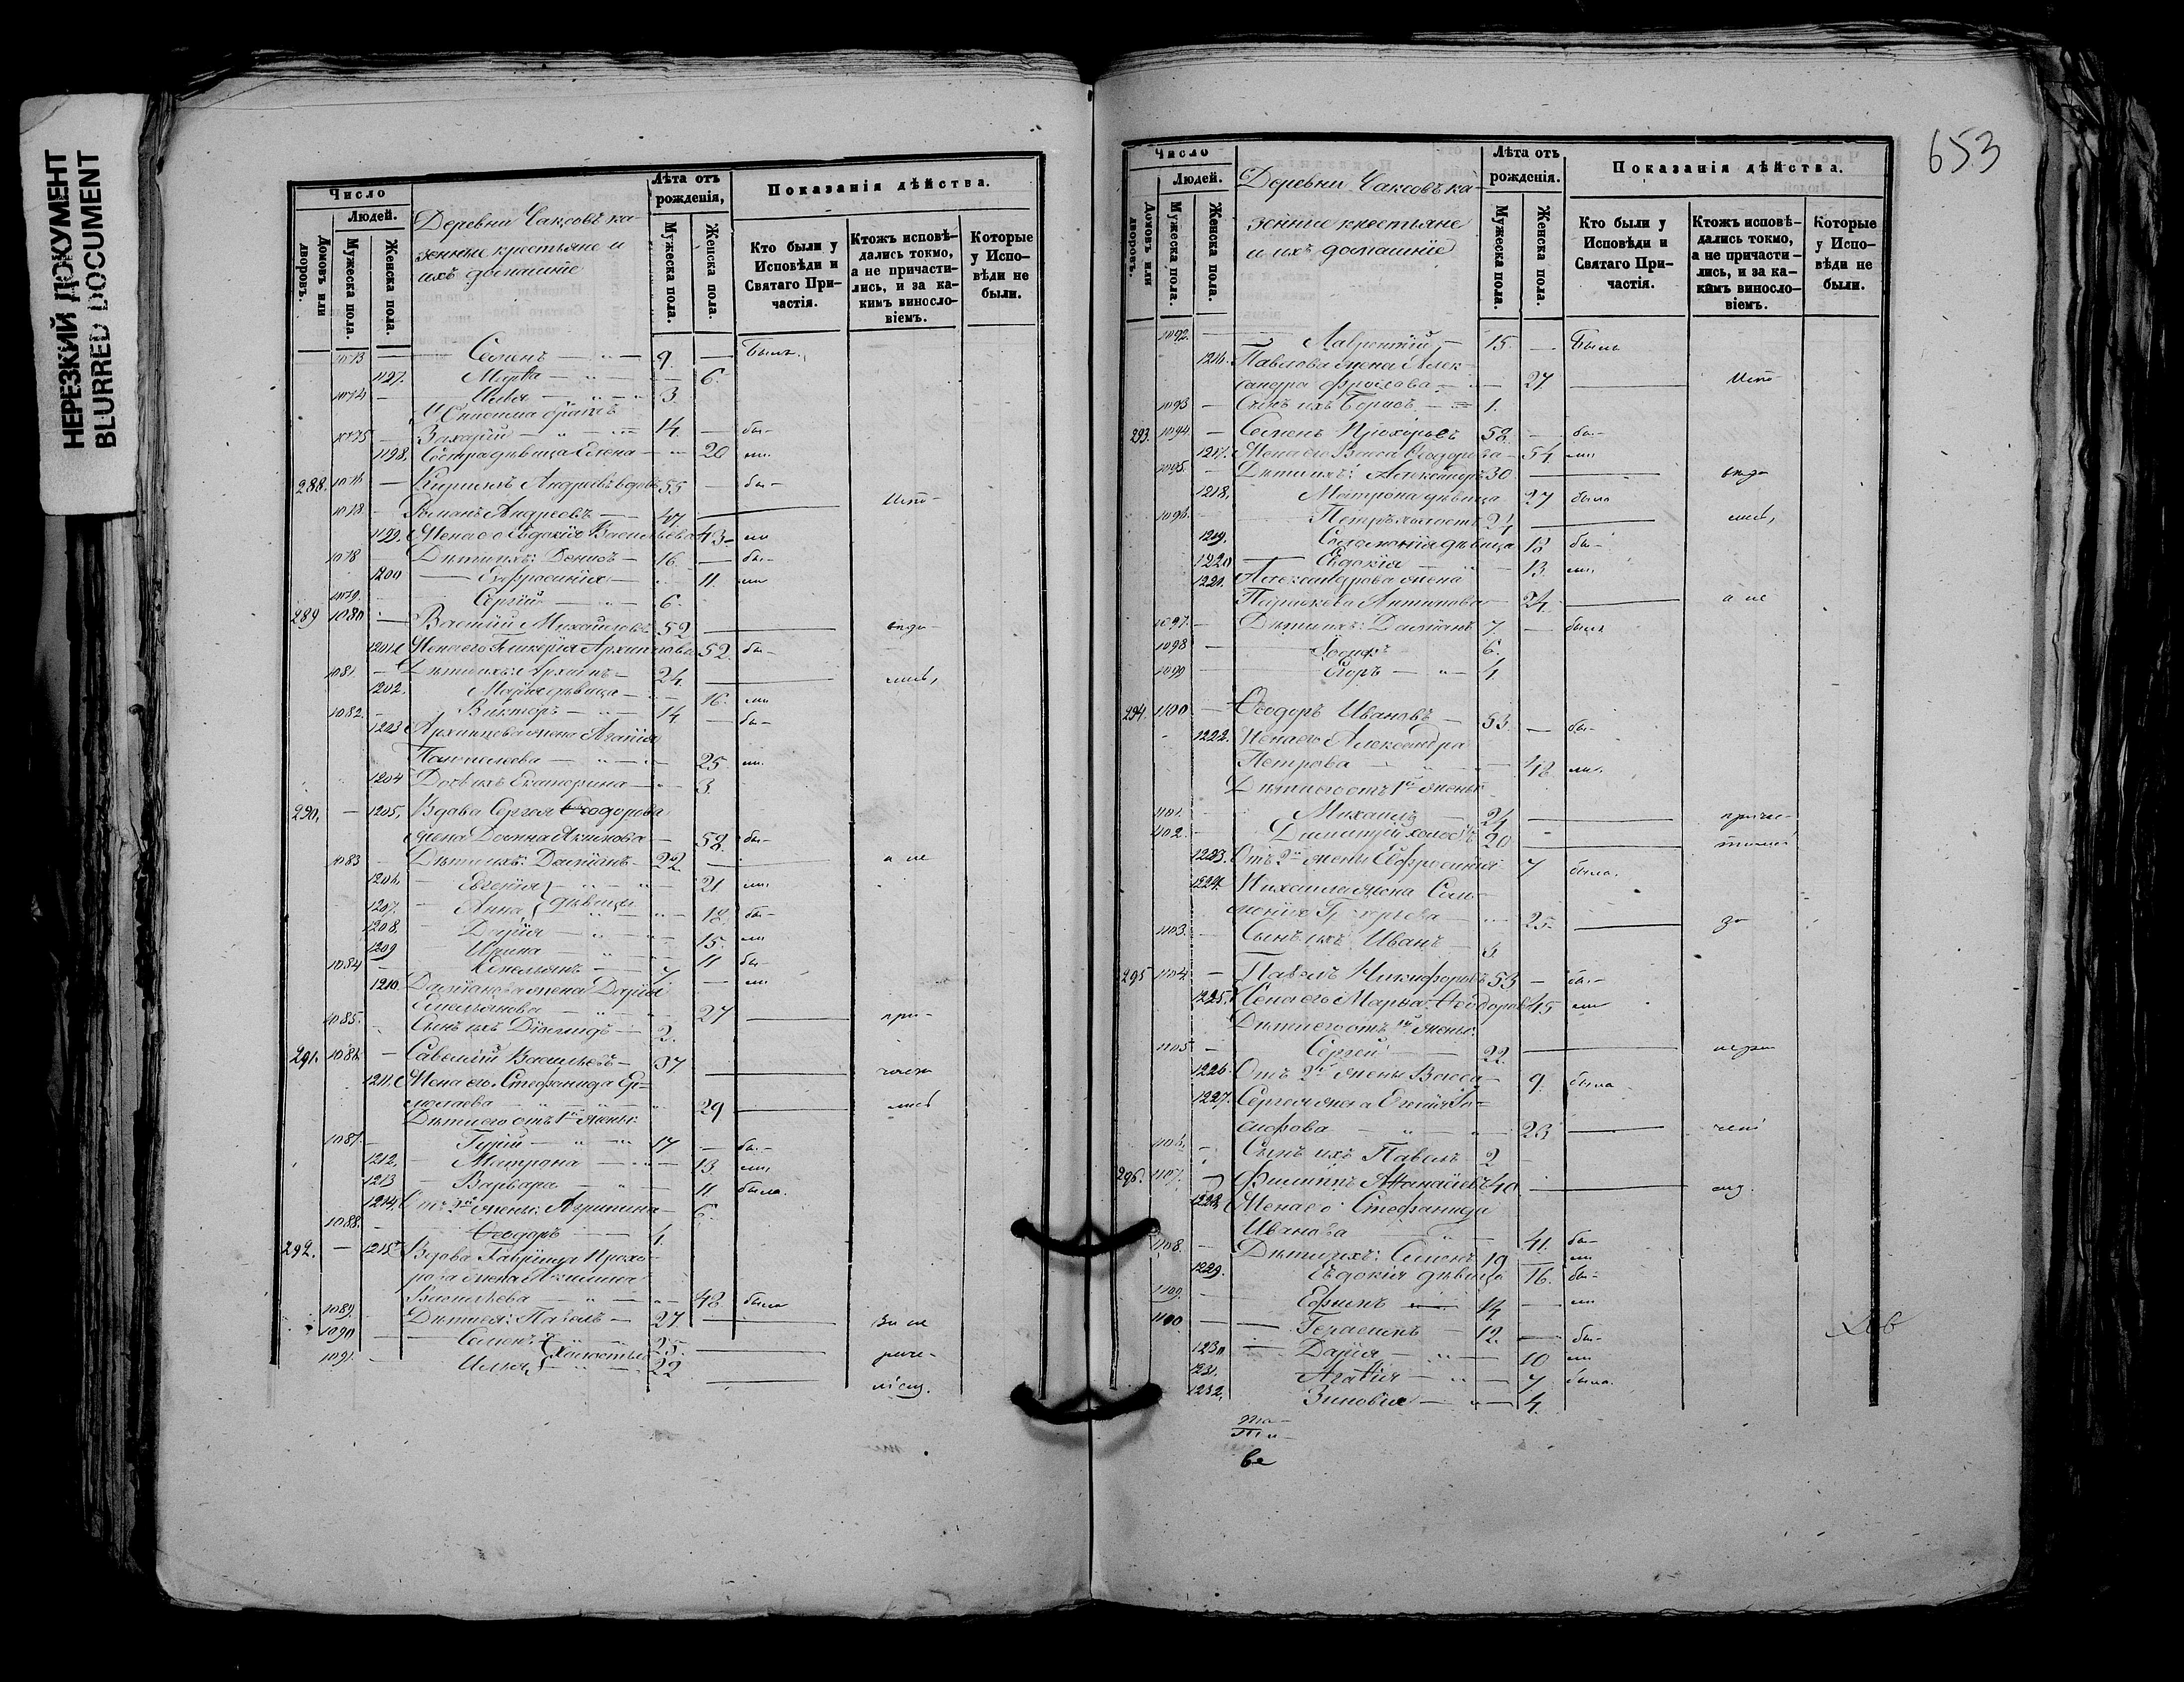 НЕРЕЗКИЙ ДОКУМЕНТ
BLURRED DOCUMENT
Число
Людей.
Домовъ или дворовъ.
Мужеска пола.
Женска пола.
Деревни Чаксовъ ка-
зенные крестьяне и
ихъ домашніе
Лѣта отъ рожденія,
Мужеска пола.
Женска пола.
Показанія дѣйства.
Кто были у Исповѣди и Святаго При-частія.
Ктожъ исповѣ-дались токмо, а не причасти-лись, и за ка-кимъ винносло-віемъ.
Которые у Испо-вѣди не были.
1073 — Семенъ — 9. — былъ.
1197. Марѳа — 6.
1074 — Илья — 3
Семена братъ
1075 — Захарій — 14. — бы-
1198. Сестра дѣвица Елена — 20 ли
288. 1076 — Кириллъ Андреевъ вдовъ 55 — бы-
1078 — Романъ Андреевъ — 47. — Испо-
1199. Жена его Евдокія Васильева 43 — ли
1078 — Дѣти ихъ: Денисъ — 16. — бы-
1200 — Евфросинія — 11. ли
1079. — Сергій — 6.
289 1080 — Василій Михайловъ 52 — вѣда-
1201 Жена его Гликерія Архиппова 52. бы-
1081 — Дѣти ихъ: Архипъ — 24. — лись,
1202. Марія дѣвица — 16. ли
1082. — Викторъ — 14 — бы-
1203 Архипова жена Агапія
Пантелеева — 25. ли.
1204 Дочь ихъ Екатерина — 3.
290, — 1205, Вдова Сергея Ѳеодорова
жена Домна Акимова — 58. бы-
1083 — Дѣти ихъ: Даміанъ — 22. — а не
1206. — Евгенія } — 21 ли.
1207. — Анна } дѣвицы — 18. бы-
1208. — Дарія — 15. ли
1209 — Ирина — 11 бы-
1084 — Емельянъ — 7 — ли
1210. Даміанова жена Дарія
Емельянова — 27 — при-
1085. — Сынъ ихъ Діомидъ — 2.
291. 1086. — Савелій Васильевъ — 37. — части
1211. Жена его Стефанида Ер-
молаева — 29 — лись
Дѣти его отъ 1й жены:
1087. — Гурій — 17 — бы-
1212. — Матрона — 13. ли,
1213 — Варвара — 11 была.
1214. Отъ 2й жены: Агрипина — 6.
1088. — Ѳеодоръ — 1.
292. — 1215 Вдова Гавріила Прохо-
рова жена Акилина
Васильева — 48 была
1089. — Дѣти ея: Павелъ — 27 — за не
1090 — Семенъ } — 25. — раче-
1091. — Илья } холостые — 22 — ніемъ.
653
Число
Людей.
Домовъ или дворовъ.
Мужеска пола.
Женска пола.
Деревни Чаксовъ ка-
зенные крестьяне
и ихъ домашніе
Лѣта отъ рожденія.
Мужеска пола.
Женска пола.
Показанія дѣйства.
Кто были у Исповѣди и Святаго При-частія.
Ктожъ исповѣ-дались токмо, а не причасти-лись, и за ка-кимъ винносло-віемъ.
Которые у Испо-вѣди не были.
1092. — Лаврентій — 15. — былъ
1216. Павлова жена Алек-
сандра Фролова — 27 — Испо-
1093 — Сынъ ихъ Борисъ — 1.
293. 1094. — Семенъ Прохоровъ 58. — бы-
1217. Жена его Васса Ѳеодорова — 54 ли
1095. — Дѣти ихъ: Александръ 30 — вѣда-
1218. Матрона дѣвица 27 была
1096. — Петръ холостъ 24 — лись,
1219. Соломонія дѣвица 18 бы-
1220 — Евдокія — 13. ли.
1221. Александрова жена
Параскева Антипова — 24. — а не
1097. — Дѣти ихъ: Даміанъ 7. — былъ
1098 — 6.
1099 — Егоръ — 4.
294. 1100 — Ѳеодоръ Ивановъ — 53. — бы-
1222. Жена его Александра
Петрова — 48 ли.
Дѣти его отъ 1й жены:
1101. — Михаилъ — 24 — прича-
1102. — Димитрій холостъ 20 — тились
1223. Отъ 2й жены Евфросинія 7 была.
1224. Михаила жена Соло-
монія Григорьева — 25. — за
1103. — Сынъ ихъ Иванъ — 3.
295 1104 — Павелъ Никифоровъ 53 — бы-
1225. Жена его Марѳа Ѳеодорова 45 ли
Дѣти его отъ 1й жены:
1105 — Сергей — 22. — нера-
1226. Отъ 2й жены Васса — 9. была
1227. Сергея жена Евгенія Іо-
сифова — 23 — чені
1106. — Сынъ ихъ Павелъ — 2 —
296. 1107. — Филиппъ Аѳанасіевъ 40 — емъ.
1228. Жена его Стефанида
Иванова — 41. бы-
1108. — Дѣти ихъ: Семенъ 19 — ли
1229. Евдокія дѣвица 16. бы-
1109. — Ефимъ — 14 — ли
1110. — Герасимъ — 12. — бы-
1230 — Дарія — 10 ли
1231. Агаѳія — 7 была.
1232. Зиновія — 4.
ве